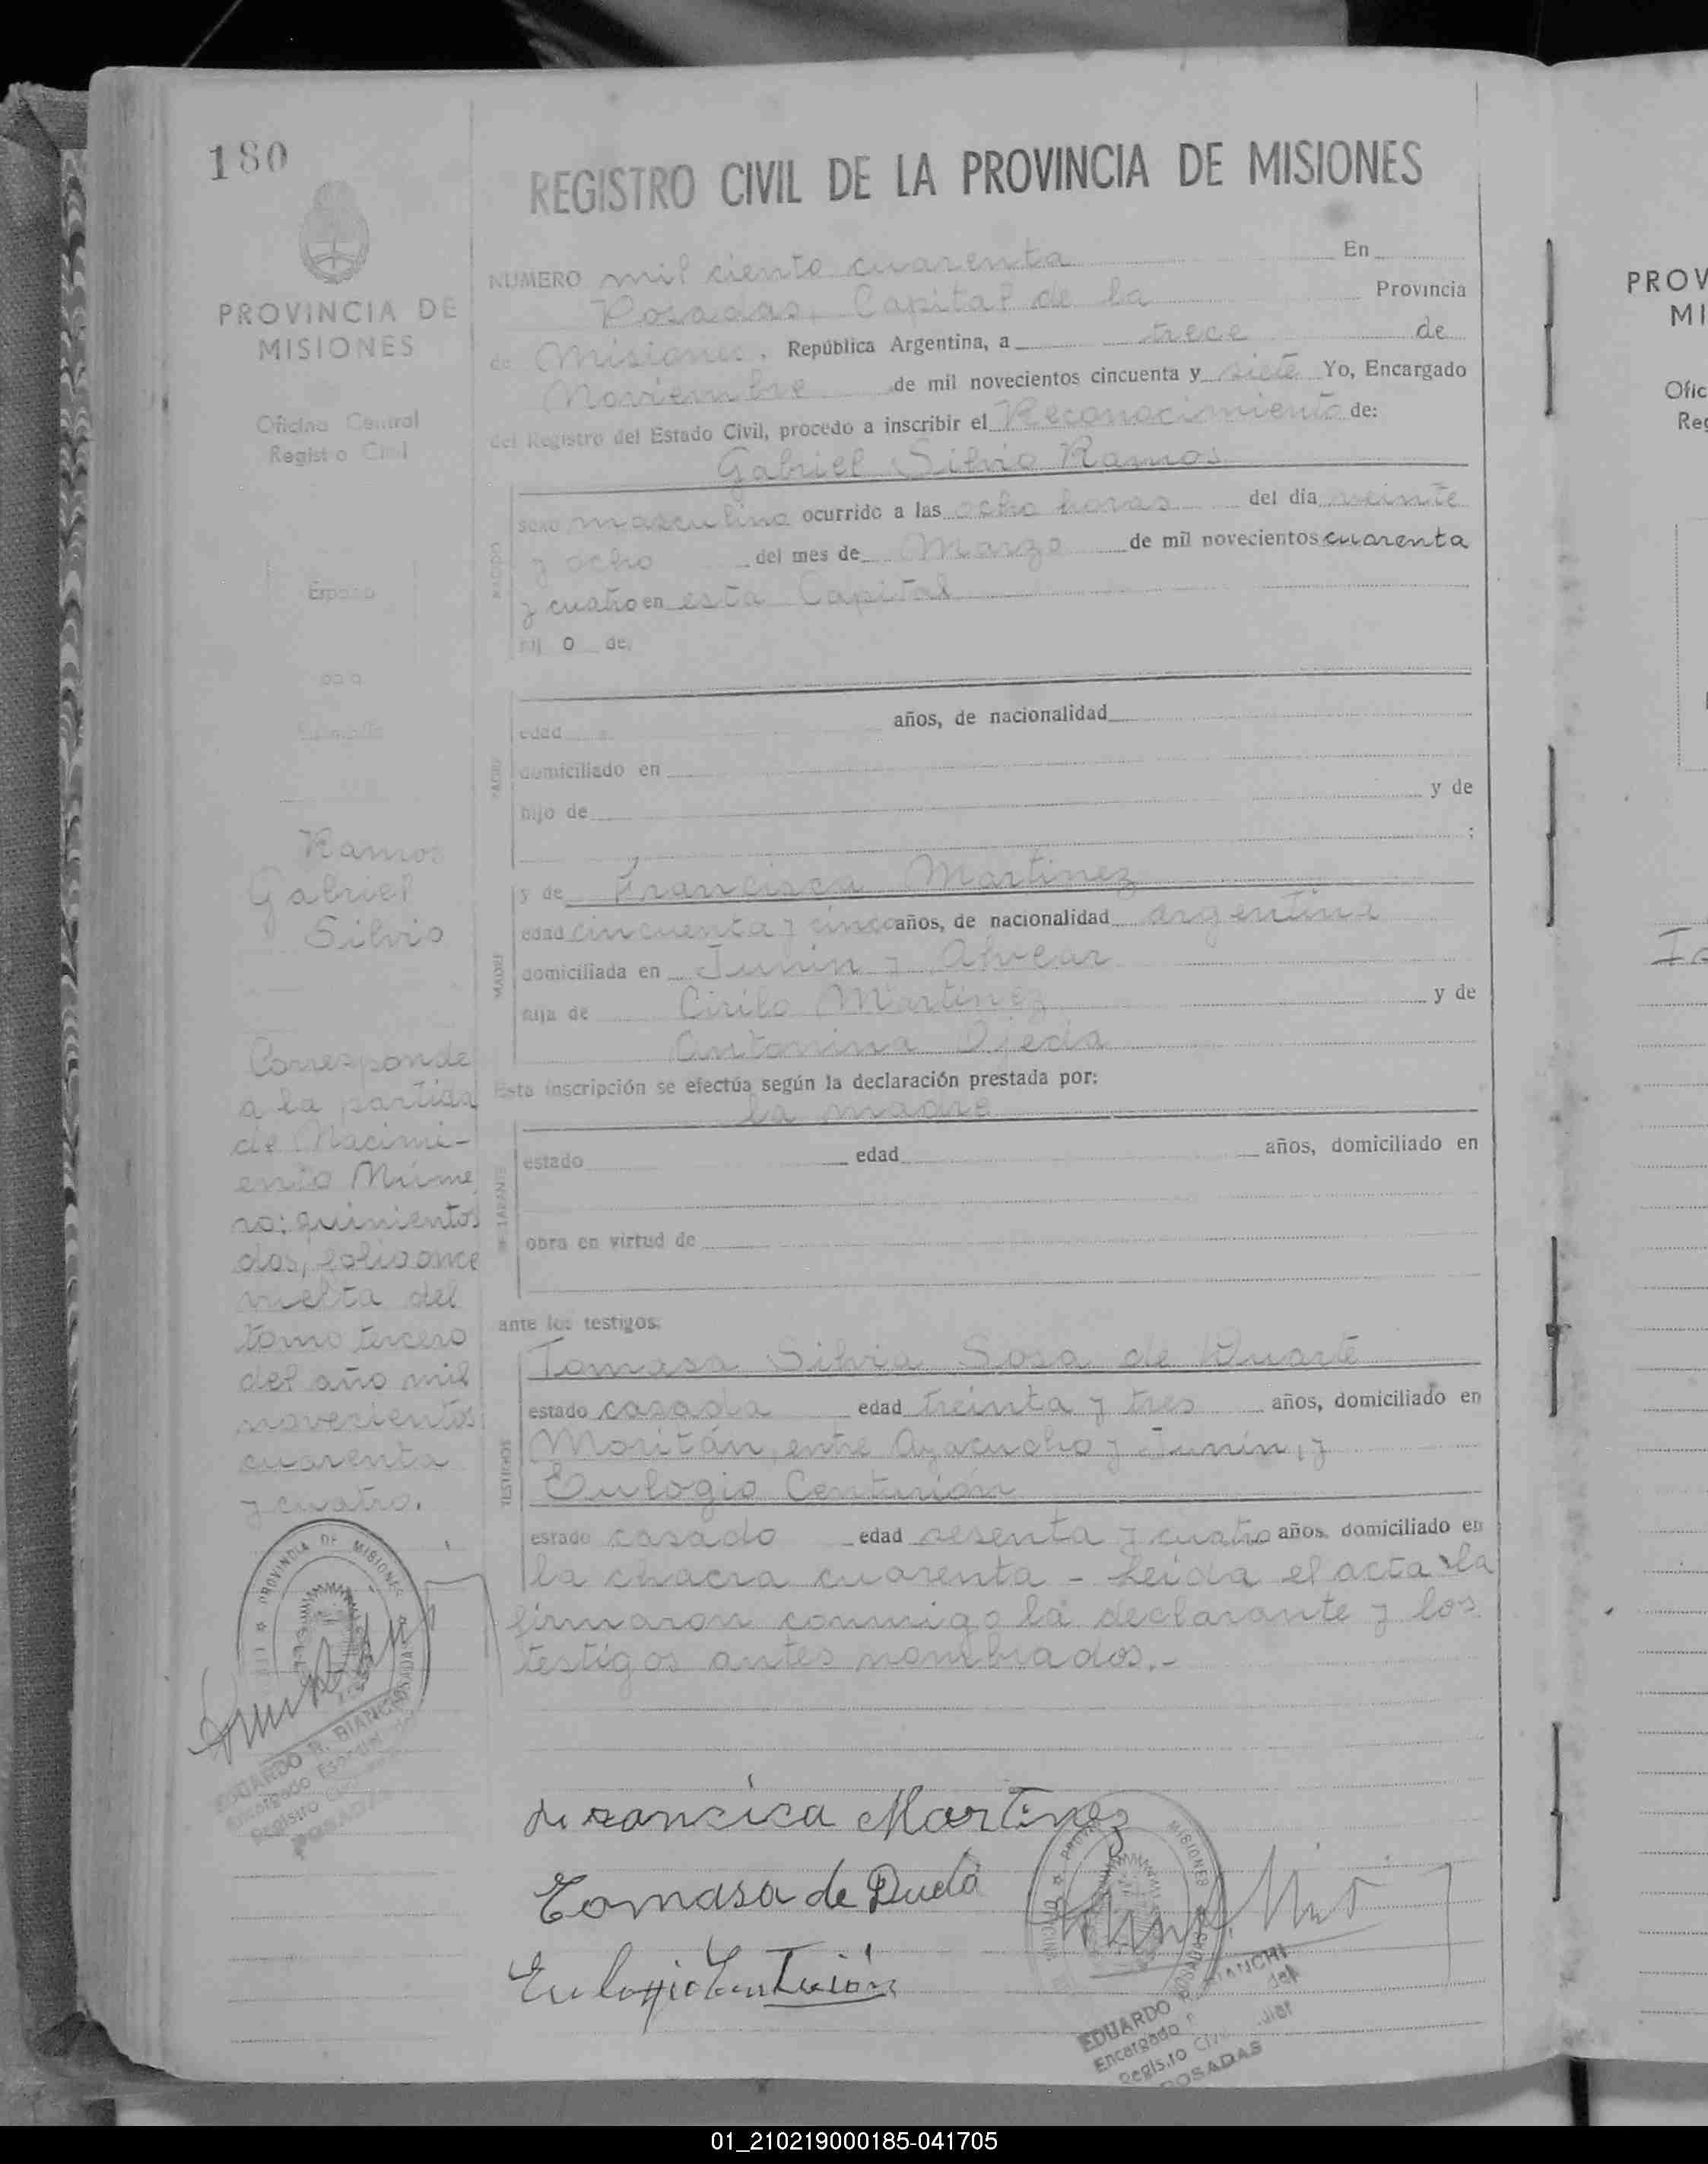 180
REGISTRO CIVIL DE LA PROVINCIA DE MISIONES
PROVINCIA DE
MISIONES
Oficina Central
Registro Civil
Ramos
Gabriel
Silvio
Corresponde
a la partida
de Nacimi-
ento Núme
ro: quinientos
dos, folio once
vuelta del
tomo tercero
del año mil
novecientos
cuarenta
y cuatro.
PROVINCIA DE MISIONES
EDUARDO R. BIANCHI
Encargado
Registro
POSADAS
NUMERO mil ciento cuarenta En
Posadas, Capital de la Provincia
de Misiones, República Argentina, a trece de
Noviembre de mil novecientos cincuenta y siete Yo, Encargado
del Registro del Estado Civil, procedo a inscribir el Reconocimiento de:
Gabriel Silvio Ramos
sexo masculino ocurrido a las ocho horas del día veinte
y ocho del mes de Marzo de mil novecientos cuarenta
y cuatro en esta Capital
hij o de
edad años, de nacionalidad
domiciliado en
hijo de y de
;
PADRE
y de Francisca Martinez
edad cincuenta y cinco años, de nacionalidad argentina
domiciliada en Junín y Alvear
hija de Cirilo Martínez y de
Antonina Ojeda
MADRE
Esta inscripción se efectúa según la declaración prestada por:
la madre
estado edad años, domiciliado en
obra en virtud de
ante los testigos:
Tomasa Silvia Sosa de Duarte
estado casada edad treinta y tres años, domiciliado en
Moritán, entre Ayacucho y Junín, y
Eulogio Centurión
estado casado edad sesenta y cuatro años, domiciliado en
la chacra cuarenta - Leída el acta la
firmaron conmigo la declarante y los
testigos antes nombrados.-
TESTIGOS
Francisca Martinez
Tomasa de
Eulogio Centurión
MISIONES
EDUARDO R. BIANCHI
Encargado del
Registro Civil
POSADAS
PROV
MI
Ofic
Reg
01_210219000185-041705